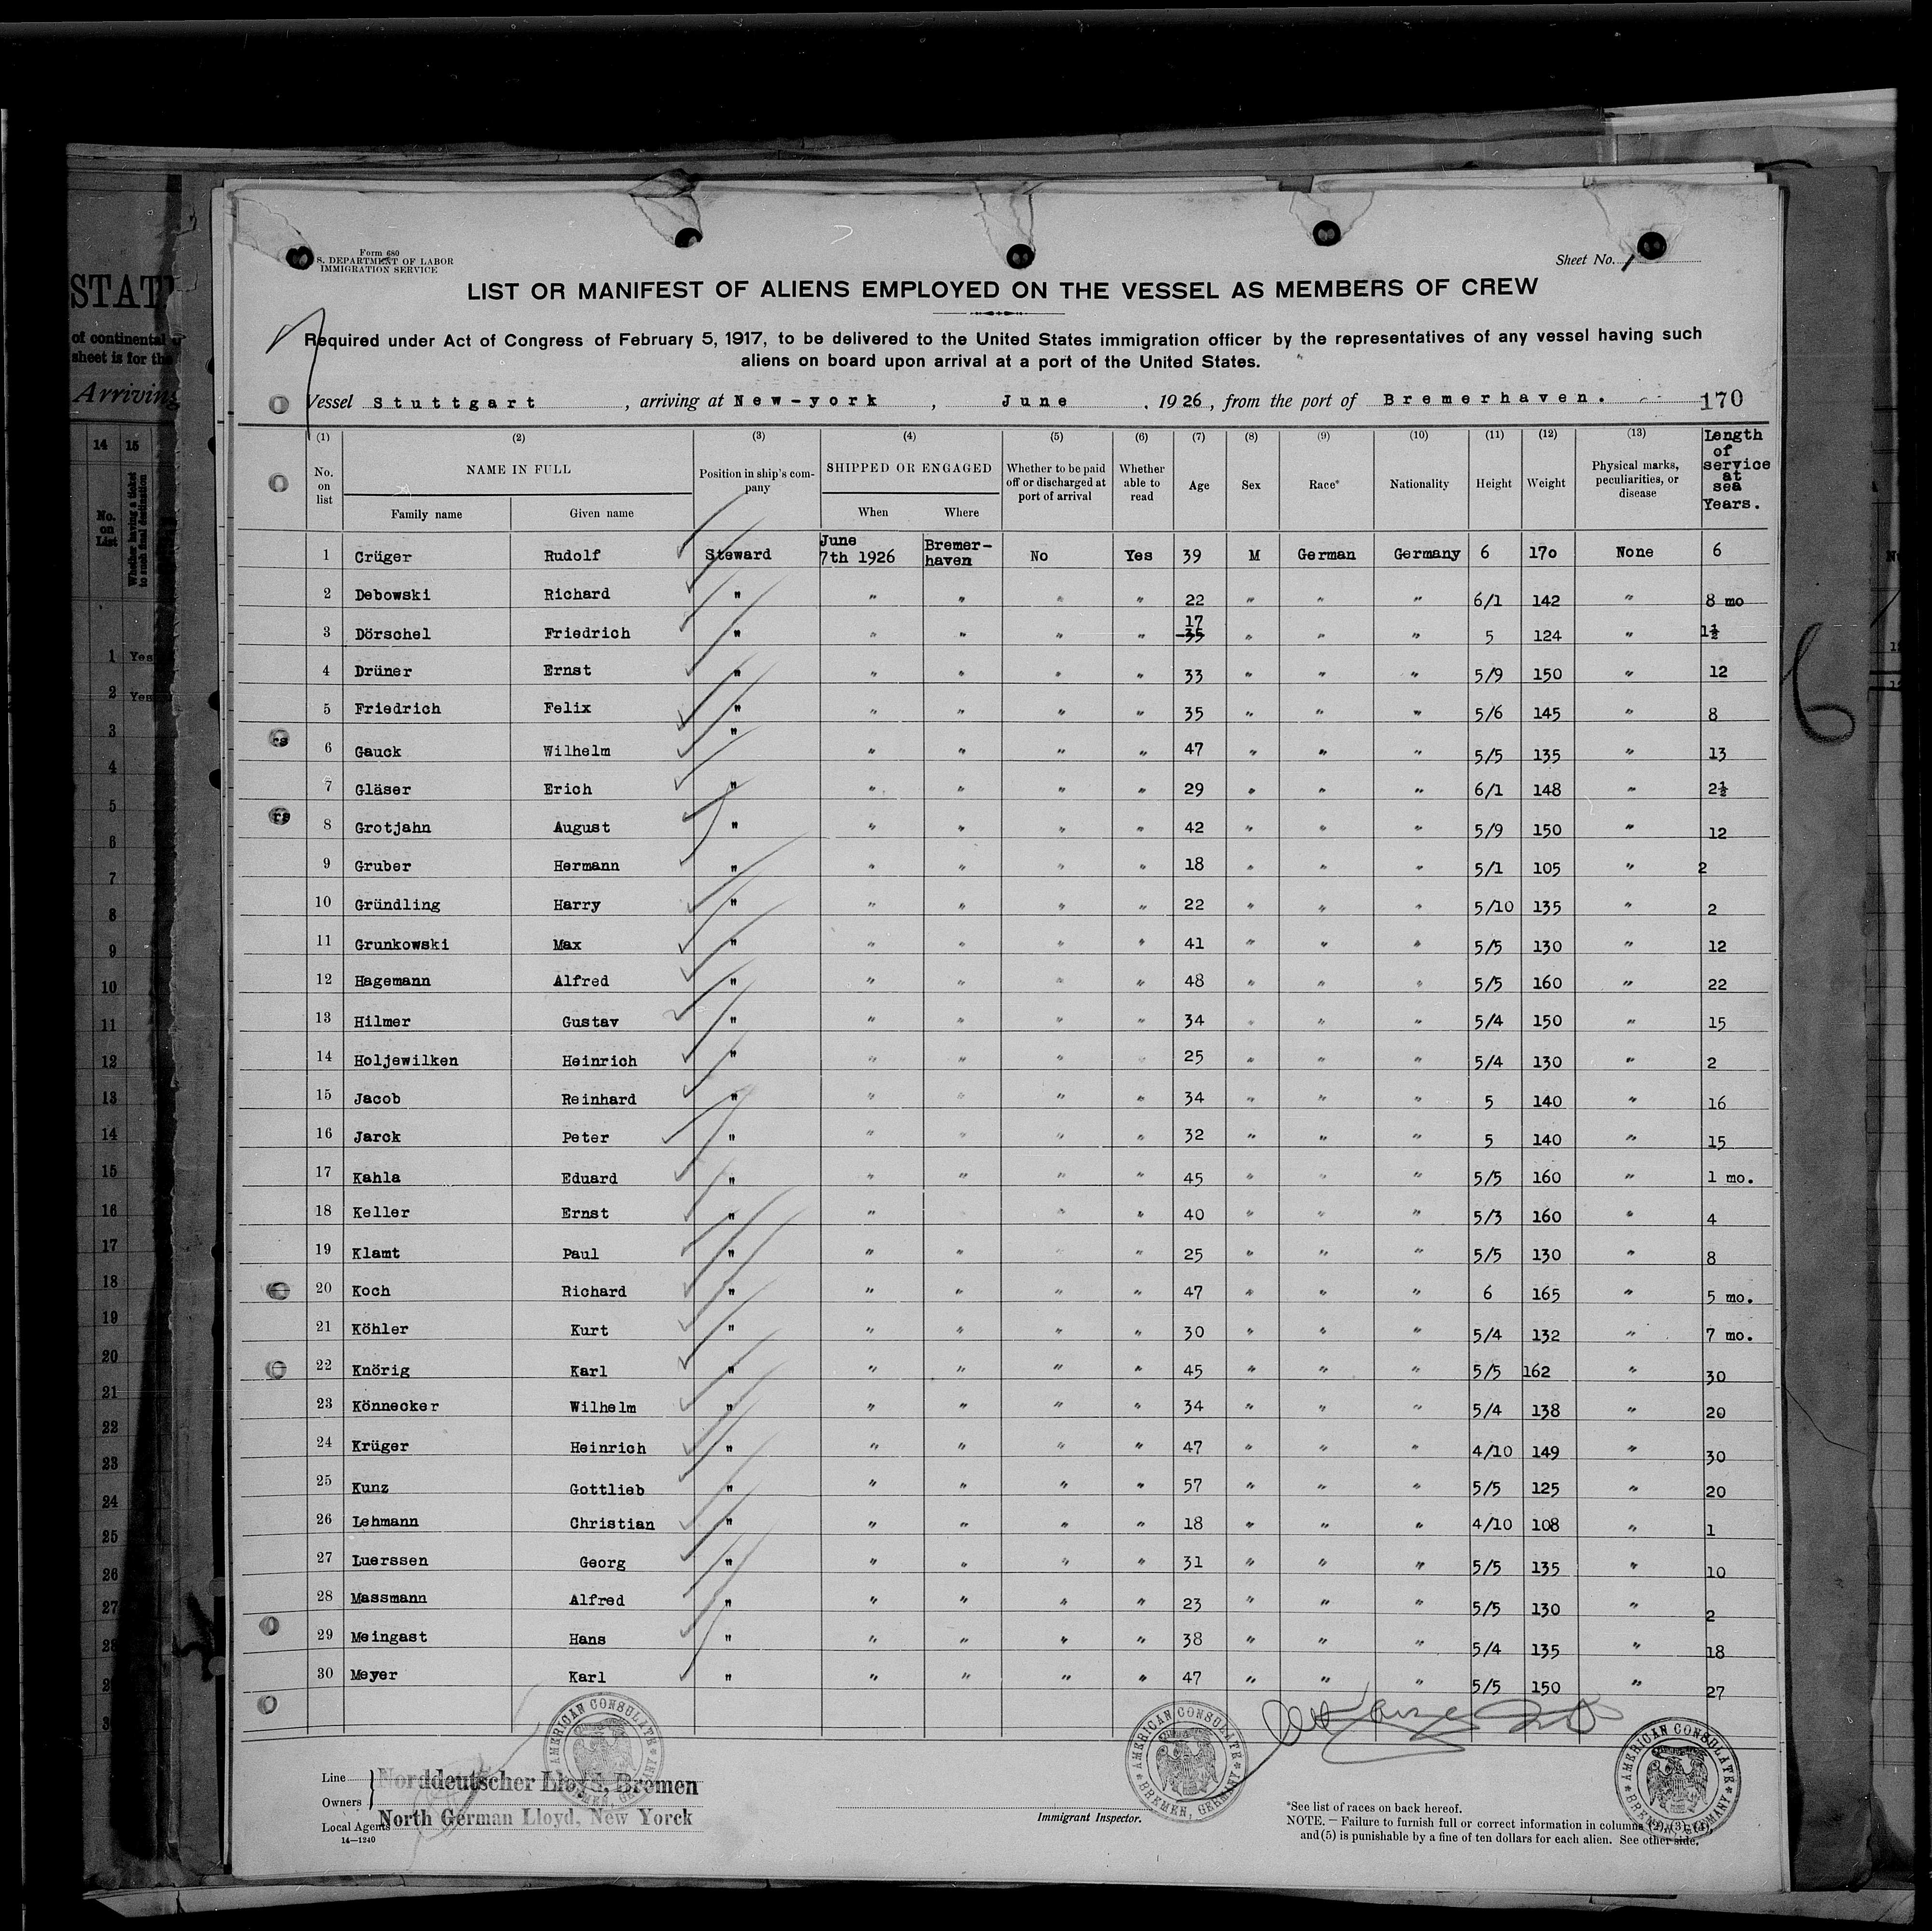 Form 680
S. DEPARTMENT OF LABOR
IMMIGRATION SERVICE
Sheet No. 1
LIST OR MANIFEST OF ALIENS EMPLOYED ON THE VESSEL AS MEMBERS OF CREW
Required under Act of Congress of February 5, 1917, to be delivered to the United States immigration officer by the representatives of any vessel having such
aliens on board upon arrival at a port of the United States.
Vessel Stuttgart, arriving at New-york, June, 1926, from the port of Bremerhaven. 170
(1) (2) (3) (4) (5) (6) (7) (8) (9) (10) (11) (12) (13)
No. on list NAME IN FULL Family name Given name Position in ship's company SHIPPED OR ENGAGED When Where Whether to be paid off or discharged at port of arrival Whether able to read Age Sex Race* Nationality Height Weight Physical marks, peculiarities, or disease Length of service at sea Years.
1 Crüger Rudolf Steward June 7th 1926 Bremer-haven No Yes 39 M German Germany 6 170 None 6
2 Debowski Richard " " " " " 22 " " " 6/1 142 " 8 mo
3 Dörschel Friedrich " " " " " 17 35 " " " 5 124 " 1½
4 Drüner Ernst " " " " " 33 " " " 5/9 150 " 12
5 Friedrich Felix " " " " " 35 " " " 5/6 145 " 8
6 Gauck Wilhelm " " " " " 47 " " " 5/5 135 " 13
7 Gläser Erich " " " " " 29 " " " 6/1 148 " 2½
8 Grotjahn August " " " " " 42 " " " 5/9 150 " 12
9 Gruber Hermann " " " " " 18 " " " 5/1 105 " 2
10 Gründling Harry " " " " " 22 " " " 5/10 135 " 2
11 Grunkowski Max " " " " " 41 " " " 5/5 130 " 12
12 Hagemann Alfred " " " " " 48 " " " 5/5 160 " 22
13 Hilmer Gustav " " " " " 34 " " " 5/4 150 " 15
14 Holjewilken Heinrich " " " " " 25 " " " 5/4 130 " 2
15 Jacob Reinhard " " " " " 34 " " " 5 140 " 16
16 Jarck Peter " " " " " 32 " " " 5 140 " 15
17 Kahla Eduard " " " " " 45 " " " 5/5 160 " 1 mo.
18 Keller Ernst " " " " " 40 " " " 5/3 160 " 4
19 Klamt Paul " " " " " 25 " " " 5/5 130 " 8
20 Koch Richard " " " " " 47 " " " 6 165 " 5 mo.
21 Köhler Kurt " " " " " 30 " " " 5/4 132 " 7 mo.
22 Knörig Karl " " " " " 45 " " " 5/5 162 " 30
23 Könnecker Wilhelm " " " " " 34 " " " 5/4 138 " 20
24 Krüger Heinrich " " " " " 47 " " " 4/10 149 " 30
25 Kunz Gottlieb " " " " " 57 " " " 5/5 125 " 20
26 Lehmann Christian " " " " " 18 " " " 4/10 108 " 1
27 Luerssen Georg " " " " " 31 " " " 5/5 135 " 10
28 Massmann Alfred " " " " " 23 " " " 5/5 130 " 2
29 Meingast Hans " " " " " 38 " " " 5/4 135 " 18
30 Meyer Karl " " " " " 47 " " " 5/5 150 " 27
AMERICAN CONSULATE BREMEN, GERMANY
AMERICAN CONSULATE BREMEN, GERMANY
AMERICAN CONSULATE BREMEN, GERMANY
Line Norddeutscher Lloyd, Bremen
Owners
Local Agents North German Lloyd, New Yorck
14—1240
Immigrant Inspector.
*See list of races on back hereof.
NOTE. — Failure to furnish full or correct information in columns (2), (3), (4),
and (5) is punishable by a fine of ten dollars for each alien. See other side.
6
STAT
of continental
sheet is for the
Arriving
14 15
No. on List
Whether having a ticket to such final destination
1 Yes
2 Yes
3
4
5
6
7
8
9
10
11
12
13
14
15
16
17
18
19
20
21
22
23
24
25
26
27
28